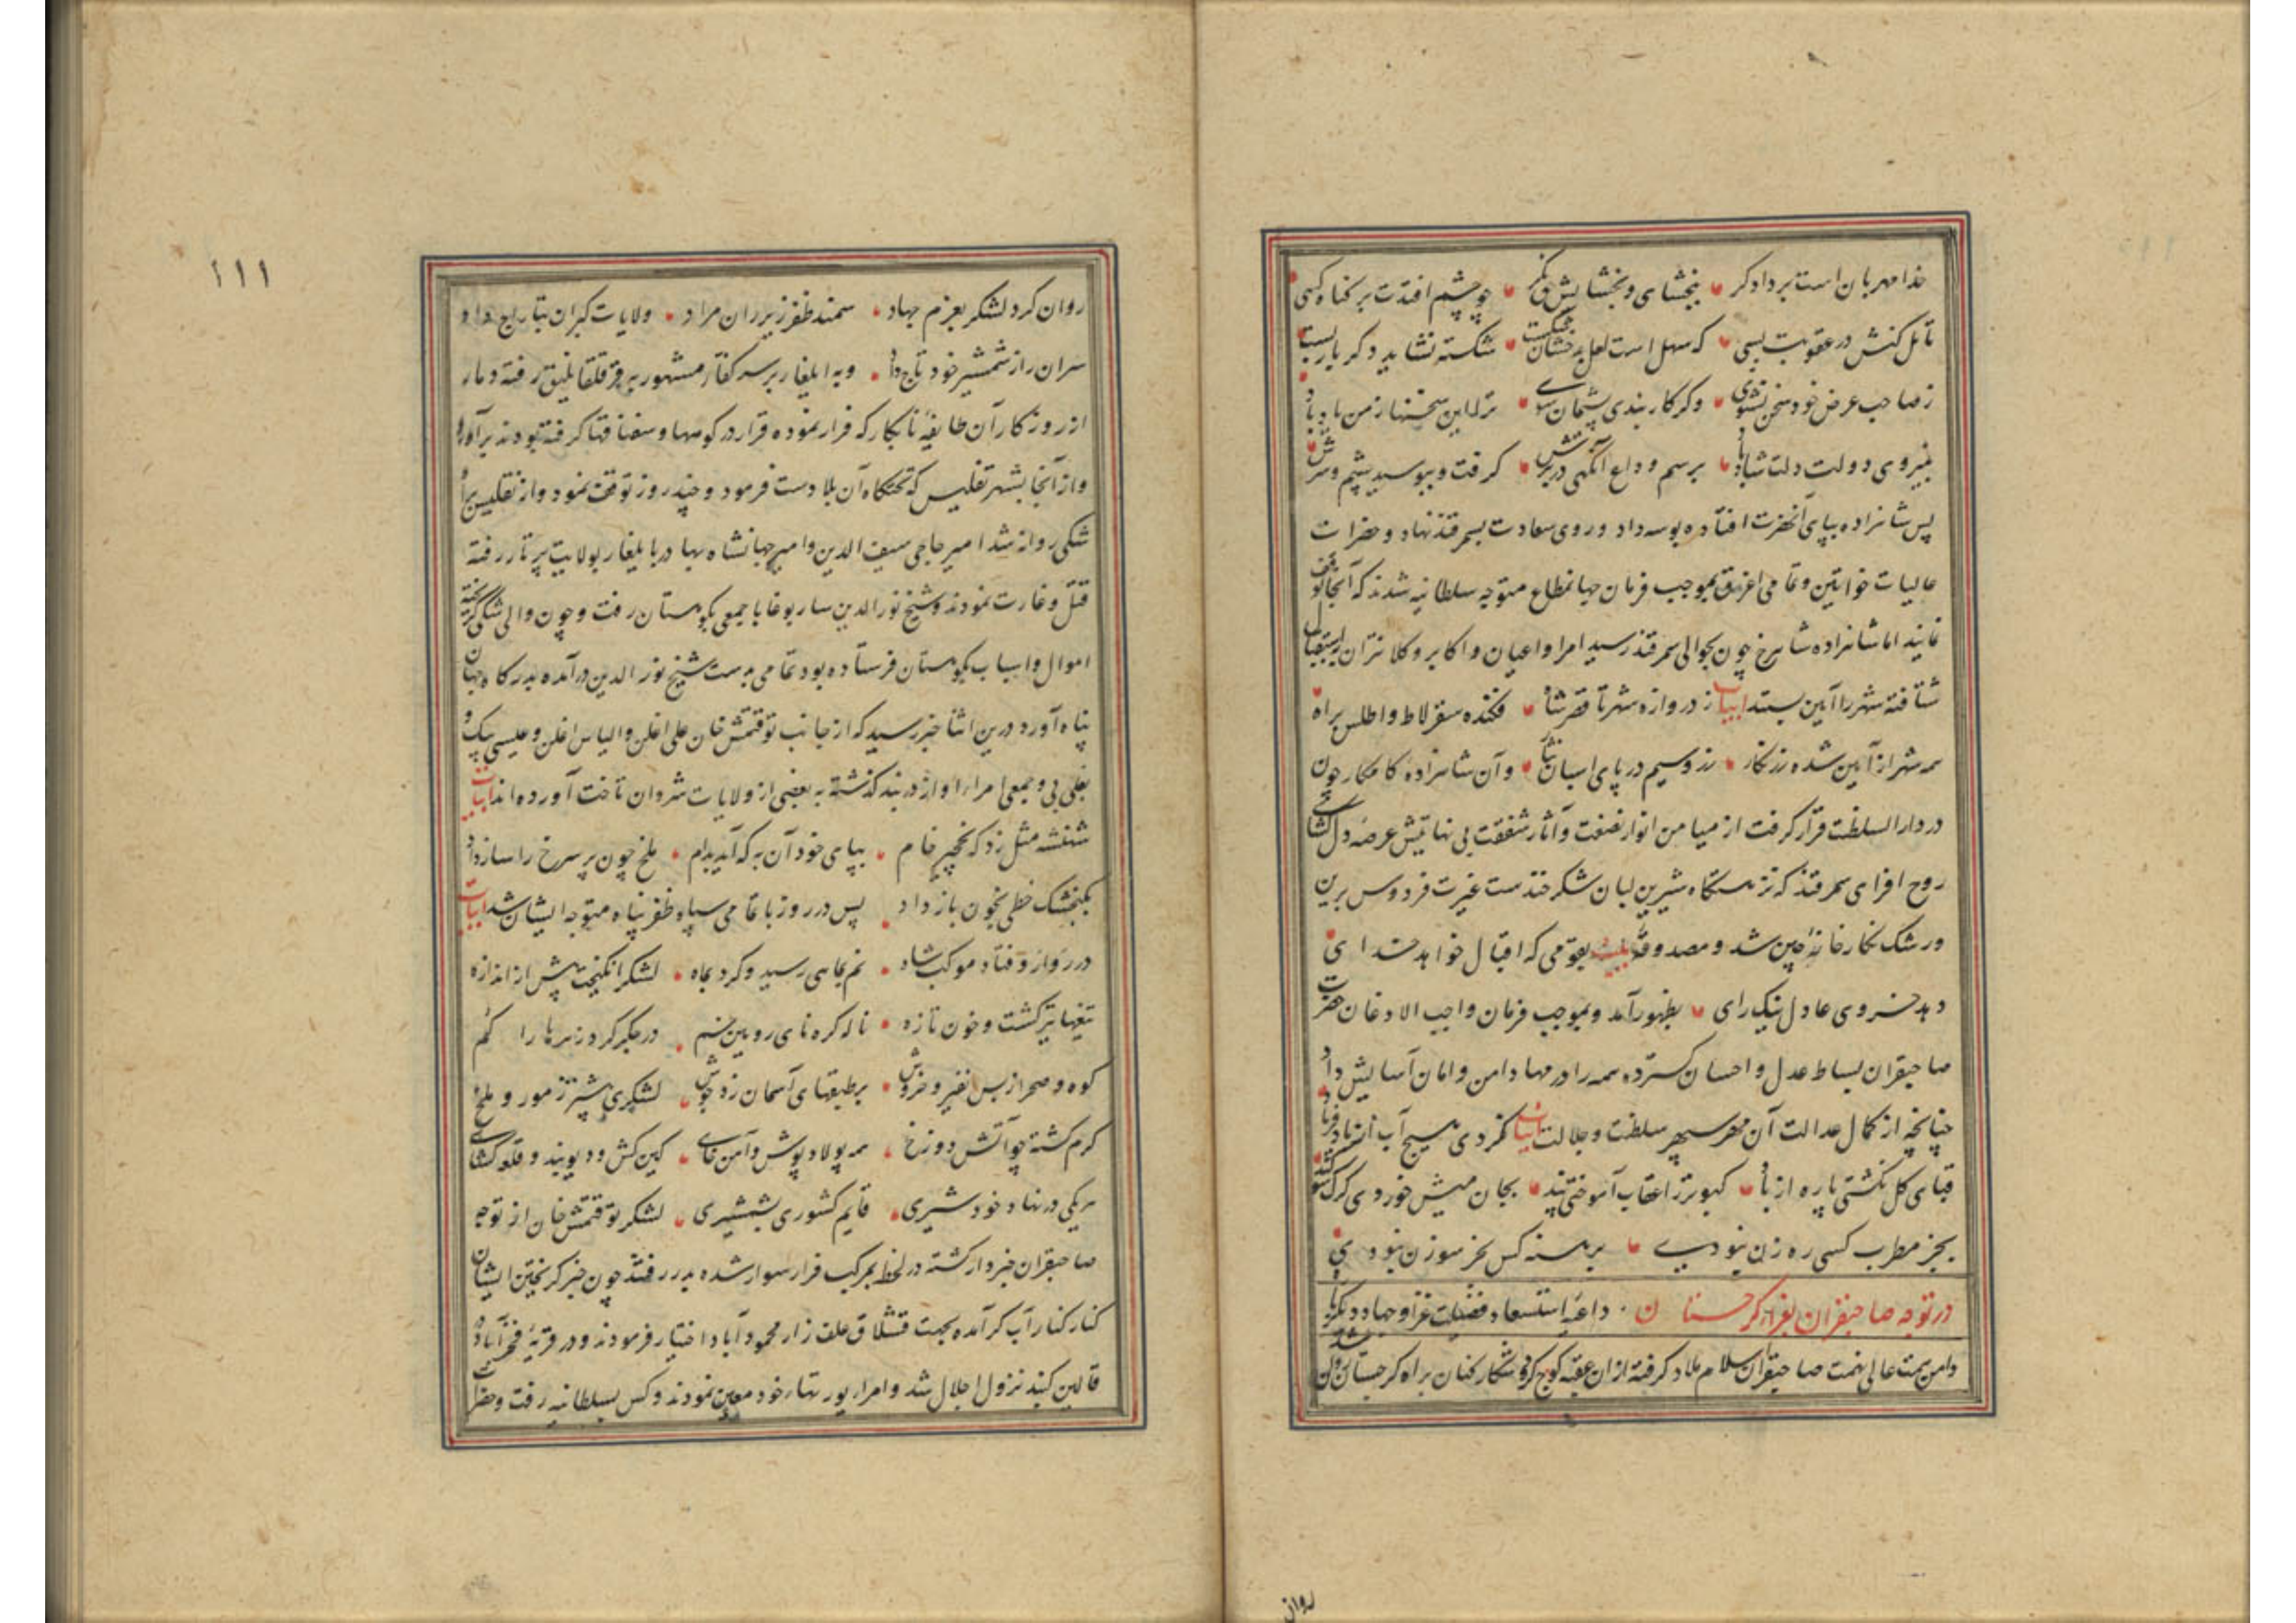 خدا مهربان است بر دادگر بخشای و بخشایش نگر چو چشم افتدت بر گناه کسی
تأمل کنش در عقوبت بسی که سهل است لعل بدخشان شکست شکسته نشاید دگر باره بست
ز صاحب غرض خود سخن نشنوی وگر کار بندی پشیمان شوی ترا این سخنها ز من یاد باد
بنیروی دولت دلت شاد باد برسم وداع آنگهی در برش گرفت و ببوسید چشم و سرش
پس شاهزاده بپای آنحضرت افتاده بوسه داد و روی سعادت بسمرقند نهاد و حضرات
عالیات خواتین و تمامی اغرق بموجب فرمان جهانمطاع متوجه سلطانیه شدند که آنجا توقف
نمایند اما شاهزاده شاهرخ چون بحوالی سمرقند رسید امرا و اعیان و اکابر و کلانتران استقبال
شتافته شهر را آیین بستند ابیات ز دروازه شهر تا قصر شاه فکنده سقرلاط و اطلس براه
همه شهر از آیین شده زرنگار زر و سیم در پای اسبان نثار و آن شاهزاده کامکار چون
در دار السلطنت قرار گرفت از میامن انوار نصفت و آثار شفقت بی نهایتش عرصه دلگشای
روح افزای سمرقند که نزهتگاه شیرین لبان شکر خندست غیرت فردوس برین
و رشک نگارخانه چین شد و مصدوقه بیت بقومی که اقبال خواهد خدای
دهد خسروی عادل نیک رای بظهور آمد و بموجب فرمان واجب الاذعان حضرت
صاحبقران بساط عدل و احسان گسترده همه را در مهاد امن و امان آسایش داد
چنانچه از کمال عدالت آن مهر سپهر سلطنت و جلالت ابیات نکردی هیچ آب از باد فریاد
قبای گل نگشتی پاره از باد کبوتر از عقاب آموختی پند بجان میش خوردی گرگ سوگند
بجز مطرب کسی ره زن نبودی برهنه کس بجز سوزن نبودی
در توجه صاحبقران بغزای گرجستان داعیه استسعاد فضیلت غزو جهاد دیگرباره
دامن همت عالی نهمت صاحبقران اسلام ملاد گرفته از ان عقبه کوچ کرد و شکار کنان براه گرجستان روان شد
روان
۱۱۱
روان کرد لشکر بعزم جهاد سمند ظفر زیر ران مراد ولایات گبران بتاراج داد
سران را ز شمشیر خود تاج داد و به ایلغار بر سر کفار مشهور به قرقلقانلیق رفته دمار
از روزگار آن طایفه نابکار که فرار نموده قرار در کوهها و سقناقها گرفته بودند برآورد
و از آنجا بشهر تفلیس که تختگاه آن بلادست فرمود و چند روز توقف نمود و از تفلیس براه
شکی روانه شد امیر حاجی سیف الدین و امیر جهانشاه بهادر با ایلغار بولایت برتاز رفته
قتل و غارت نمودند و شیخ نور الدین ساربوغا با جمعی بکوهستان رفت و چون والی شکی گریخته
اموال و اسباب بکوهستان فرستاده بود تمامی بدست شیخ نور الدین درآمده بدرگاه جهان
پناه آورد درین اثنا خبر رسید که از جانب توقتمش خان علی اغلن و الیاس اغلن و عیسی بیک
یغلی بی و جمعی امراء او از دربند گذشته به بعضی از ولایات شروان تاخت آورده اند ابیات
شهنشه مثل زد که نخجیر خام بپای خود آن به که آید بدام ملخ چون پر سرخ را ساز داد
بگنجشک خطی بخون باز داد پس در روز با تمامی سپاه ظفر پناه متوجه ایشان شد ابیات
در رواز و فتاد موکب شاه نم بماهی رسید و گرد بماه لشکر انگیخت بیش از اندازه
تیغها تیز گشت و خون تازه ناله کره نای رویین خم در جگر کرد زهرها را گم
کوه و صحرا ز بس نفیر و خروش بر طبقهای آسمان زد جوش لشکری بیشتر ز مور و ملخ
گرم گشته چو آتش دوزخ همه پولاد پوش و آهن خای کین کش و دیو بند و قلعه گشای
هر یکی در نهاد خود شیری قایم کشوری بشمشیری لشکر توقتمش خان از توجه
صاحبقران خبردار گشته در لحظه بمرکب فرار سوار شده بدر رفتند چون خبر گریختن ایشان
کنار کنار آب کر آمده بجهت قشلاق علف زار محمودآباد اختیار فرمودند و در قریه فخرآباد
قالین گنبد نزول اجلال شد و امرا یورتها خود معین نمودند و کس بسلطانیه رفت و حضرات